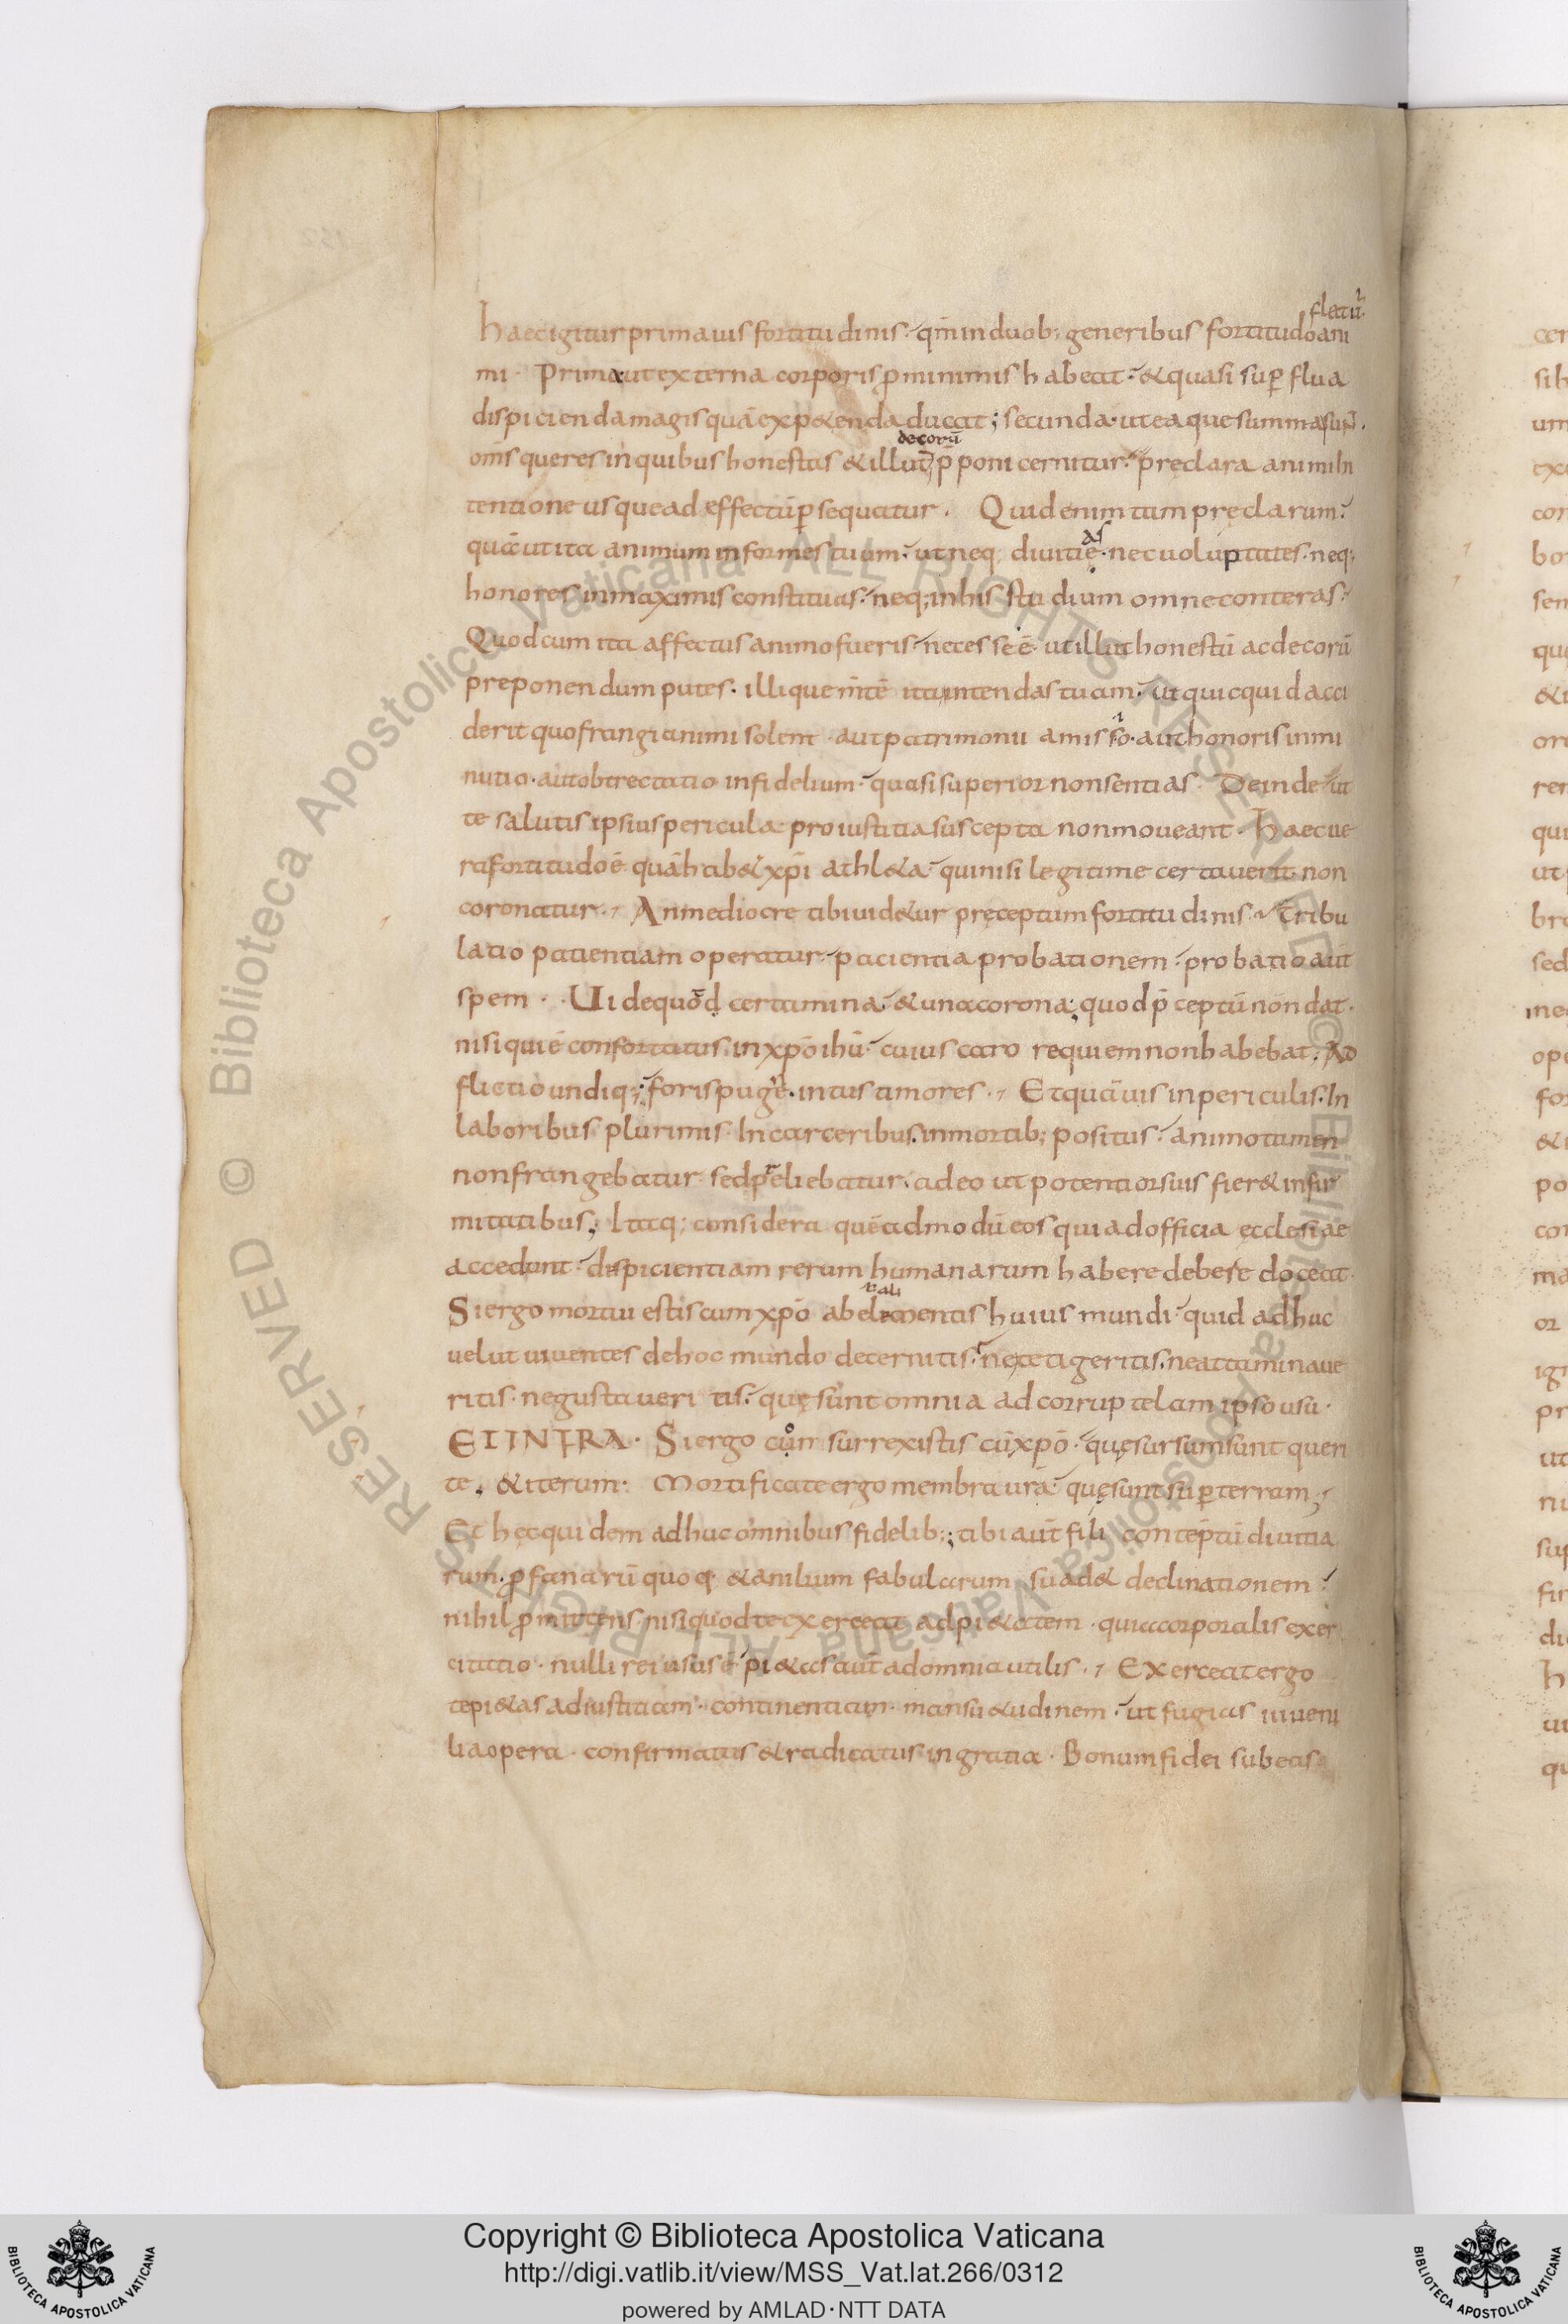 flectit͛
haec igitur prima uis fortitudinis · qm̄ in duob; generibus fortitudo ani
mi · Prima ut externa corporis p̄ minimis habeat · & quasi sup̱ flua
dispicienda magis quā exp&enda ducat ; secunda · ut ea que summa sunt ·
decorū
om̄s que res in quibus honestas & illut p̄poni cernitur · pręclara animi In
tentione usque ad effectū p̱sequatur · Quid enim tam pręclarum ·
as
quā ut ita animum informes tuum · ut neq; diuitię · nec uoluptates · neq;
honores in maximis constituas · neq; in his studium omne conteras ·
Quod cum ita affectus animo fueris · necesse ē ut illut honestū ac decorū
preponendum putes · illique m̄tē ita intendas tuam · ut quicquid acci
derit quo frangi animi solent · aut patrimonii amissio · aut honoris inmi
nutio · aut obtrectatio infidelium · quasi superior non sentias · Deinde ut
te salutis ipsius pericula pro iustitia suscepta non moueant · Haec ue
ra fortitudo ē quā hab& xp̄i athl&a · qui nisi legitime certauerit non
coronatur · An mediocre tibi uid&ur pręceptum fortitudinis · Tribu
latio patientiam operatur · pacientia probationem · probatio aūt
spem · Uide quod certamina · & una corona ; quod p̄ceptū non dat ·
nisi qui ē confortatus in xp̄o ihū · cuius caro requiem non habebat · Ad
flictio undiq; · foris pugę · intus timores · Et quāuis in periculis · In
laboribus plurimis · In carceribus · in mortib; positus · animo tamen
non frangebatur sed preliebatur · adeo ut potentior suis fier& infir
mitatibus ; Itaq; considera quēadmodū eos qui ad officia ecclesiae
accedunt · dispicientiam rerum humanarum habere debere doceat
Si ergo mortui estis cum xp̄o ab elementis huius mundi · quid adhuc
uelut uiuentes de hoc mundo decernitis · ne tetigeritis · ne attaminaue
ritis · ne gustaueritis · quę sunt omnia ad corruptelam ipso usu ·
ET INFRA · Si ergo con surrexistis cū xp̄o · quę sursum sunt queri
te · & iterum · Mortificate ergo membra ur̄a · quę sunt sup̱ terram ;
Et hęc quidem adhuc omnibus fidelib; ; tibi aūt fili contēptū diuitia
rum · p̱fanarū quoq; & anilium fabularum suad& declinationem ·
nihil p̱mittens nisi quod te exerceat ad pi&atem · quia corporalis exer
citatio · nulli rei usus ē pi&as aūt ad omnia utilis · Exerceat ergo
te pi&as ad iustitiam · continentiam · mansu&udinem · ut fugias iuueni
lia opera · confirmatus & radicatus in gratia · Bonum fidei subeas
Copyright © Biblioteca Apostolica Vaticana
http://digi.vatlib.it/view/MSS_Vat.lat.266/0312
powered by AMLAD·NTT DATA
BIBLIOTECA APOSTOLICA VATICANA
BIBLIOTECA APOSTOLICA VATICANA